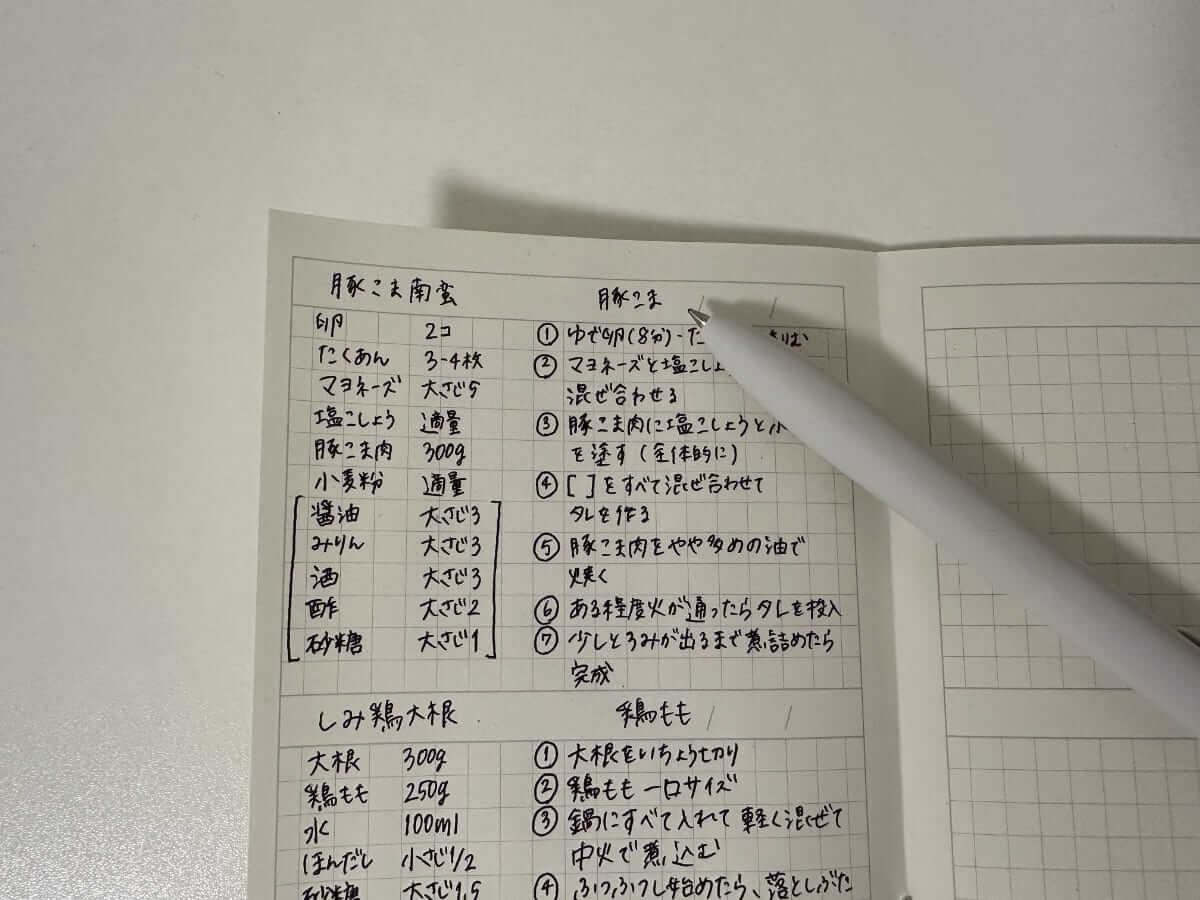 豚こま南蛮 豚こま / /
卵 2コ
たくあん 3-4枚
マヨネーズ 大さじ5
塩こしょう 適量
豚こま肉 300g
小麦粉 適量
[醤油 大さじ3
みりん 大さじ3
酒 大さじ3
酢 大さじ2
砂糖 大さじ1]
① ゆで卵(8分)・た
② マヨネーズと塩こしょ
混ぜ合わせる
③ 豚こま肉に塩こしょうと小
を塗す(全体的に)
④ [ ]をすべて混ぜ合わせて
タレを作る
⑤ 豚こま肉をやや多めの油で
焼く
⑥ ある程度火が通ったらタレを投入
⑦ 少しとろみが出るまで煮詰めたら
完成
しみ鶏大根 鶏もも / /
大根 300g
鶏もも 250g
水 100ml
ほんだし 小さじ1/2
砂糖 大さじ1,5
① 大根をいちょう切り
② 鶏もも 一口サイズ
③ 鍋にすべて入れて 軽く混ぜて
中火で煮込む
④ ふつふつし始めたら、落としぶた